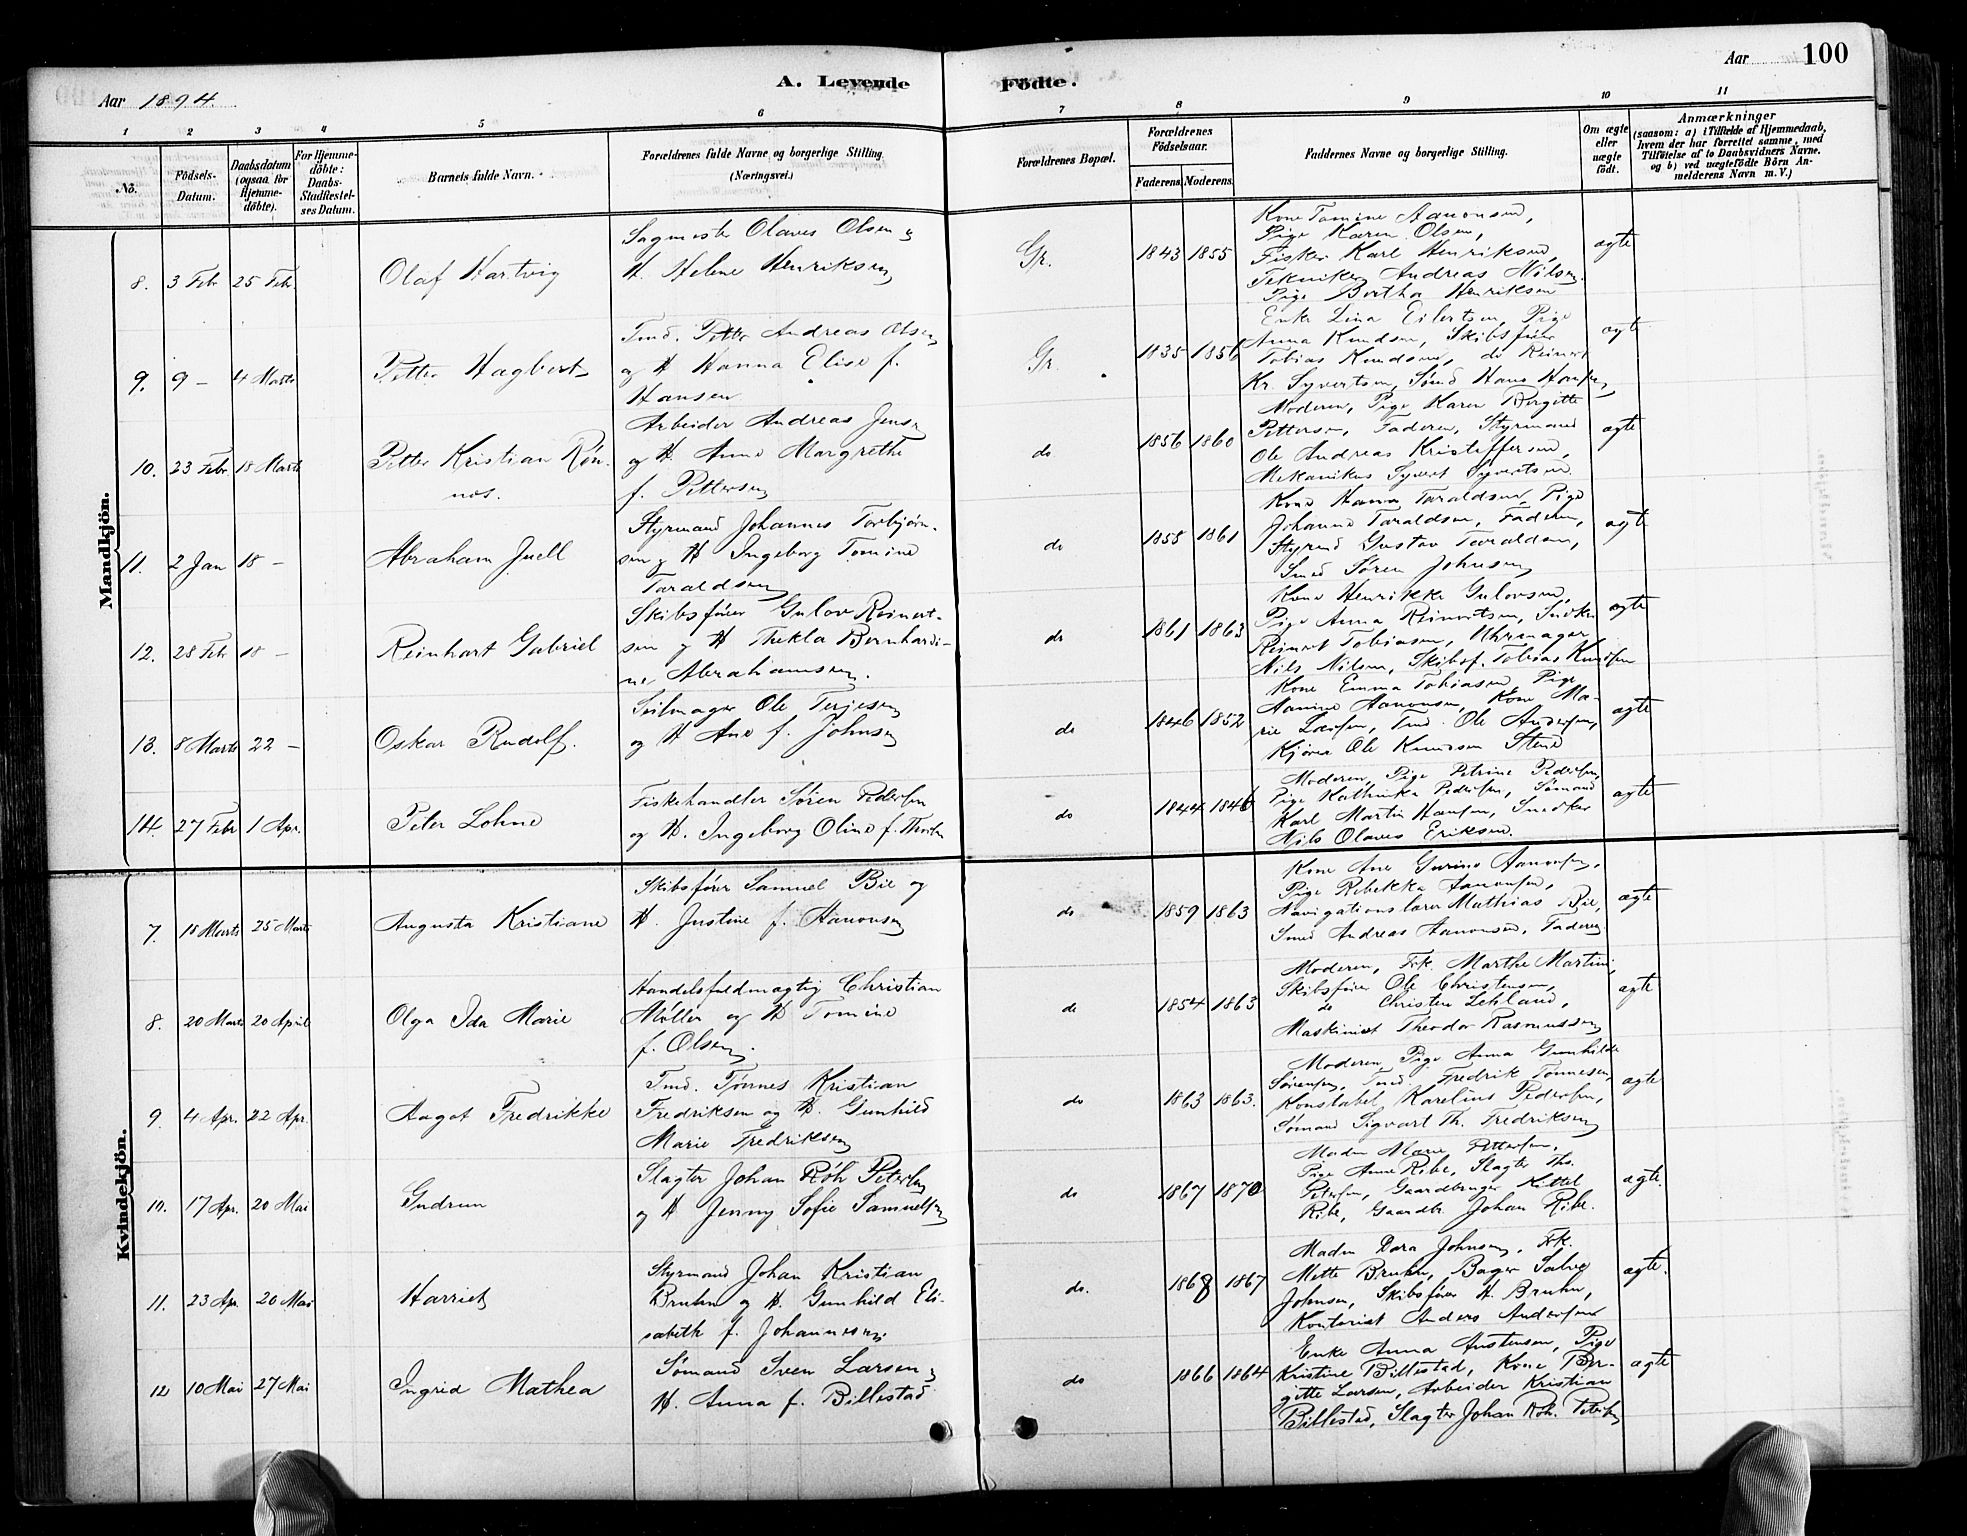 Aar 1894.
A. Levende Fødte.
Aar 100
1 2 3 4 5 6 7 8 9 10 11
No.
Födsels-Datum.
Daabsdatum (ogsaa for Hjemme-döbte).
For Hjemme-döbte: Daabs-Stadfæstel-ses Datum.
Barnets fulde Navn.
Forældrenes fulde Navne og borgerlige Stilling. (Næringsvei.)
Forældrenes Bopæl.
Forældrenes Födselsaar.
Faderens. Moderens.
Faddernes Navne og borgerlige Stilling.
Om ægte eller uægte født.
Anmærkninger
(saasom: a) i Tilfælde af Hjemmedaab, hvem der har forrettet samme, med Tilföielse af to Daabsvidners Navne. og b) ved uægtefödte Börn An-melderens Navn m. V.)
Mandkjön.
8. 3 Febr 25 Febr. Olaf Hartvig
Sagmester Olaves Olsen og
H. Helene Henriksen
Gr. 1843 1855
Kone Tomine Aanonsen,
Pige Karen Olsen,
Fisker Karl Henriksen,
Tekniker Andreas Nilsen,
Pige Bertha Henriksen
ægte
9. 9 – 4 Marts Petter Hagbert
Tmd. Petter Andreas Olsen
og H Hanna Elise f.
Hansen
Gr. 1835 1856
Enke Lina Eilertsen, Pige
Anna Knudsen, Skibsfører
Tobias Knudsen, do Reinert
Kr. Syvertsen, Sømd Hans Hansen
ægte
10. 23 Febr. 18 Marts Petter Kristian Røn-
nes.
Arbeider Andreas Jens
og H. Anne Margrethe
f. Pettersen
do 1856 1860
Moderen, Pige Karen Birgitte
Petterson, Faderen, Styrmand
Ole Andreas Kristoffersen,
Mekanikus Syvert Syvertsen
ægte
11. 2 Jan 18 – Abraham Juell
Styrmand Johannes Torbjørn-
sen og H Ingeborg Tomine
Taraldsen
do 1855 1861
Kone Hanna Taraldsen, Pige
Johanne Taraldsen, Faderen,
Styrmd Gustav Taraldsen,
Smed Søren Johnsen
ægte
12. 28 Febr 18 – Reinhart Gabriel
Skibsfører Gulov Reinert-
sen og H Thekla Bernhardi-
ne Abrahamsen.
do 1861 1863
Kone Henrikke Gulovsen,
Pige Anna Reinertsen, Snedker
Reinert Tobiasen, Uhrmager
Nils Nilsen, Skibsf. Tobias Knudsen
ægte
13. 8 Marts 22 – Oskar Rudolf.
Seilmager Ole Terjesen
og H Ane f. Johnsen
do 1846 1852
Kone Emma Tobiasen, Pige
Aanine Aanonsen, Kone Ma-
rie Larsen, Tmd. Ole Andersen,
Kjører Ole Knudsen Stene
ægte
14. 27 Febr 1 Apr. Peter Lohne
Fiskehandler Søren Pedersen
og H. Ingeborg Oline f. Thorsen
do 1844 1846
Moderen, Pige Petrine Pedersen,
Pige Kathinka Pedersen, Sømand
Karl Martin Hansen, Snedker
Nils Olaves Eriksen.
ægte
Kvindekjön.
7. 18 Marts 25 Marts Augusta Kristiane
Skibsfører Samuel Bie og
H. Justine f. Aanonsen
do 1859 1863
Kone Ane Gurine Aanonsen,
Pige Rebekka Aanonsen,
Navigationslærer Mathias Bie,
Smed Andreas Aanonsen, Faderen
ægte
8. 20 Marts 20 April Olga Ida Marie
Handelsfuldmægtig Christian
Møller og H Tomine
f. Olsen.
do 1854 1863
Moderen, Frk. Marthe Martini,
Skibsfører Ole Christensen,
do Christen Lekland,
Maskinist Theodor Rasmussen
ægte
9. 4 Apr. 22 Apr. Aagot Fredrikke
Tmd. Tønnes Kristian
Fredriksen og H. Gunhild
Marie Fredriksen
do 1863 1863.
Moderen, Pige Anna Gunhilde
Sørensen, Tmd. Fredrik Tønnesen,
Konstabel Karelius Pedersen,
Sømand Sigvart Th. Fredriksen
ægte
10. 17 Apr. 20 Mai Gudrun
Slagter Johan Röhr Petersen
og H Jenny Sofie Samuelsen
do 1867 1870
Madm Marie Pettersen,
Pige Anne Ribe, Slagter Ths.
Petersen, Gaardbruger Kittel
Ribe, Gaardbr. Johan Ribe.
ægte.
11. 23 Apr. 20 Mai Harriet
Styrmand Johan Kristian
Bruhn og H. Gunhild Eli-
sabeth f. Johannesen
do. 1868 1867
Madm Dora Johnsen, Frk.
Mette Bruhn, Bager Salve
Johnsen, Skibsfører H. Bruhn,
Kontorist Anders Andersen
ægte.
12 10 Mai 27 Mai Ingrid Mathea
Sømand Sven Larsen og
H. Anna f. Billestad
do 1866 1864
Enke Anna Austensen, Pige
Kristine Billestad, Kone Bir-
gitte Larsen, Arbeider Kristian
Billestad, Slagter Johan Röhr Petersen
ægte